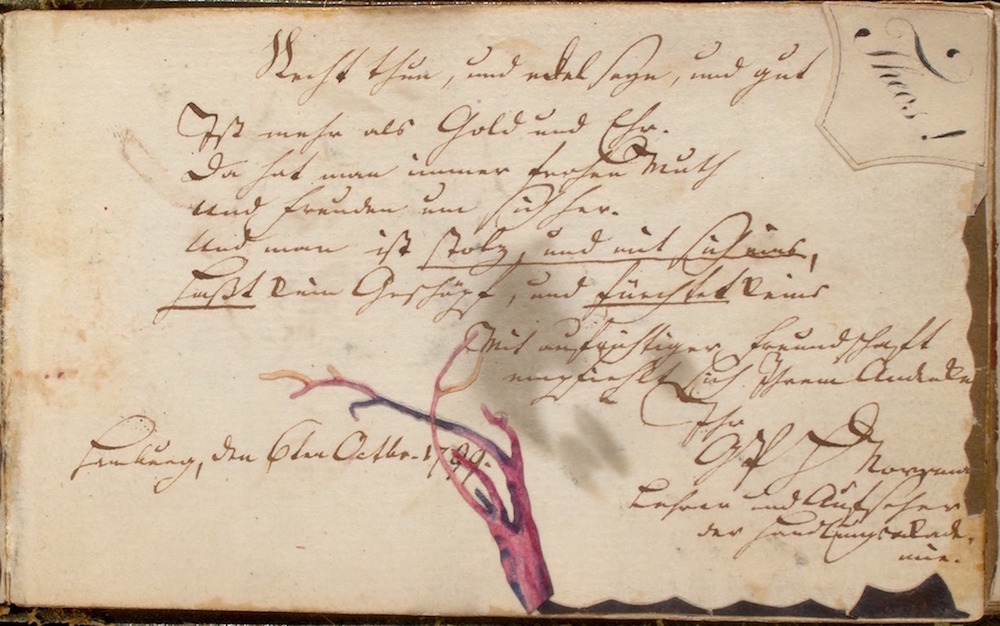 Recht thun, und edel seyn, und gut
Ist mehr als Gold und Ehr.
Da hat man immer frohen Muth
Und Freuden um sich her.
Und man ist stolz, und mit sich eins,
Haßt kein Geschöpf, und fürchtet keins
Mit aufrichtiger Freundschaft
empfiehlt sich Ihrem Andenken
Ihr
Hamburg, den 6ten Octbr. 1799.
Lehrer und Aufseher
der Handlungsakade-
mie.